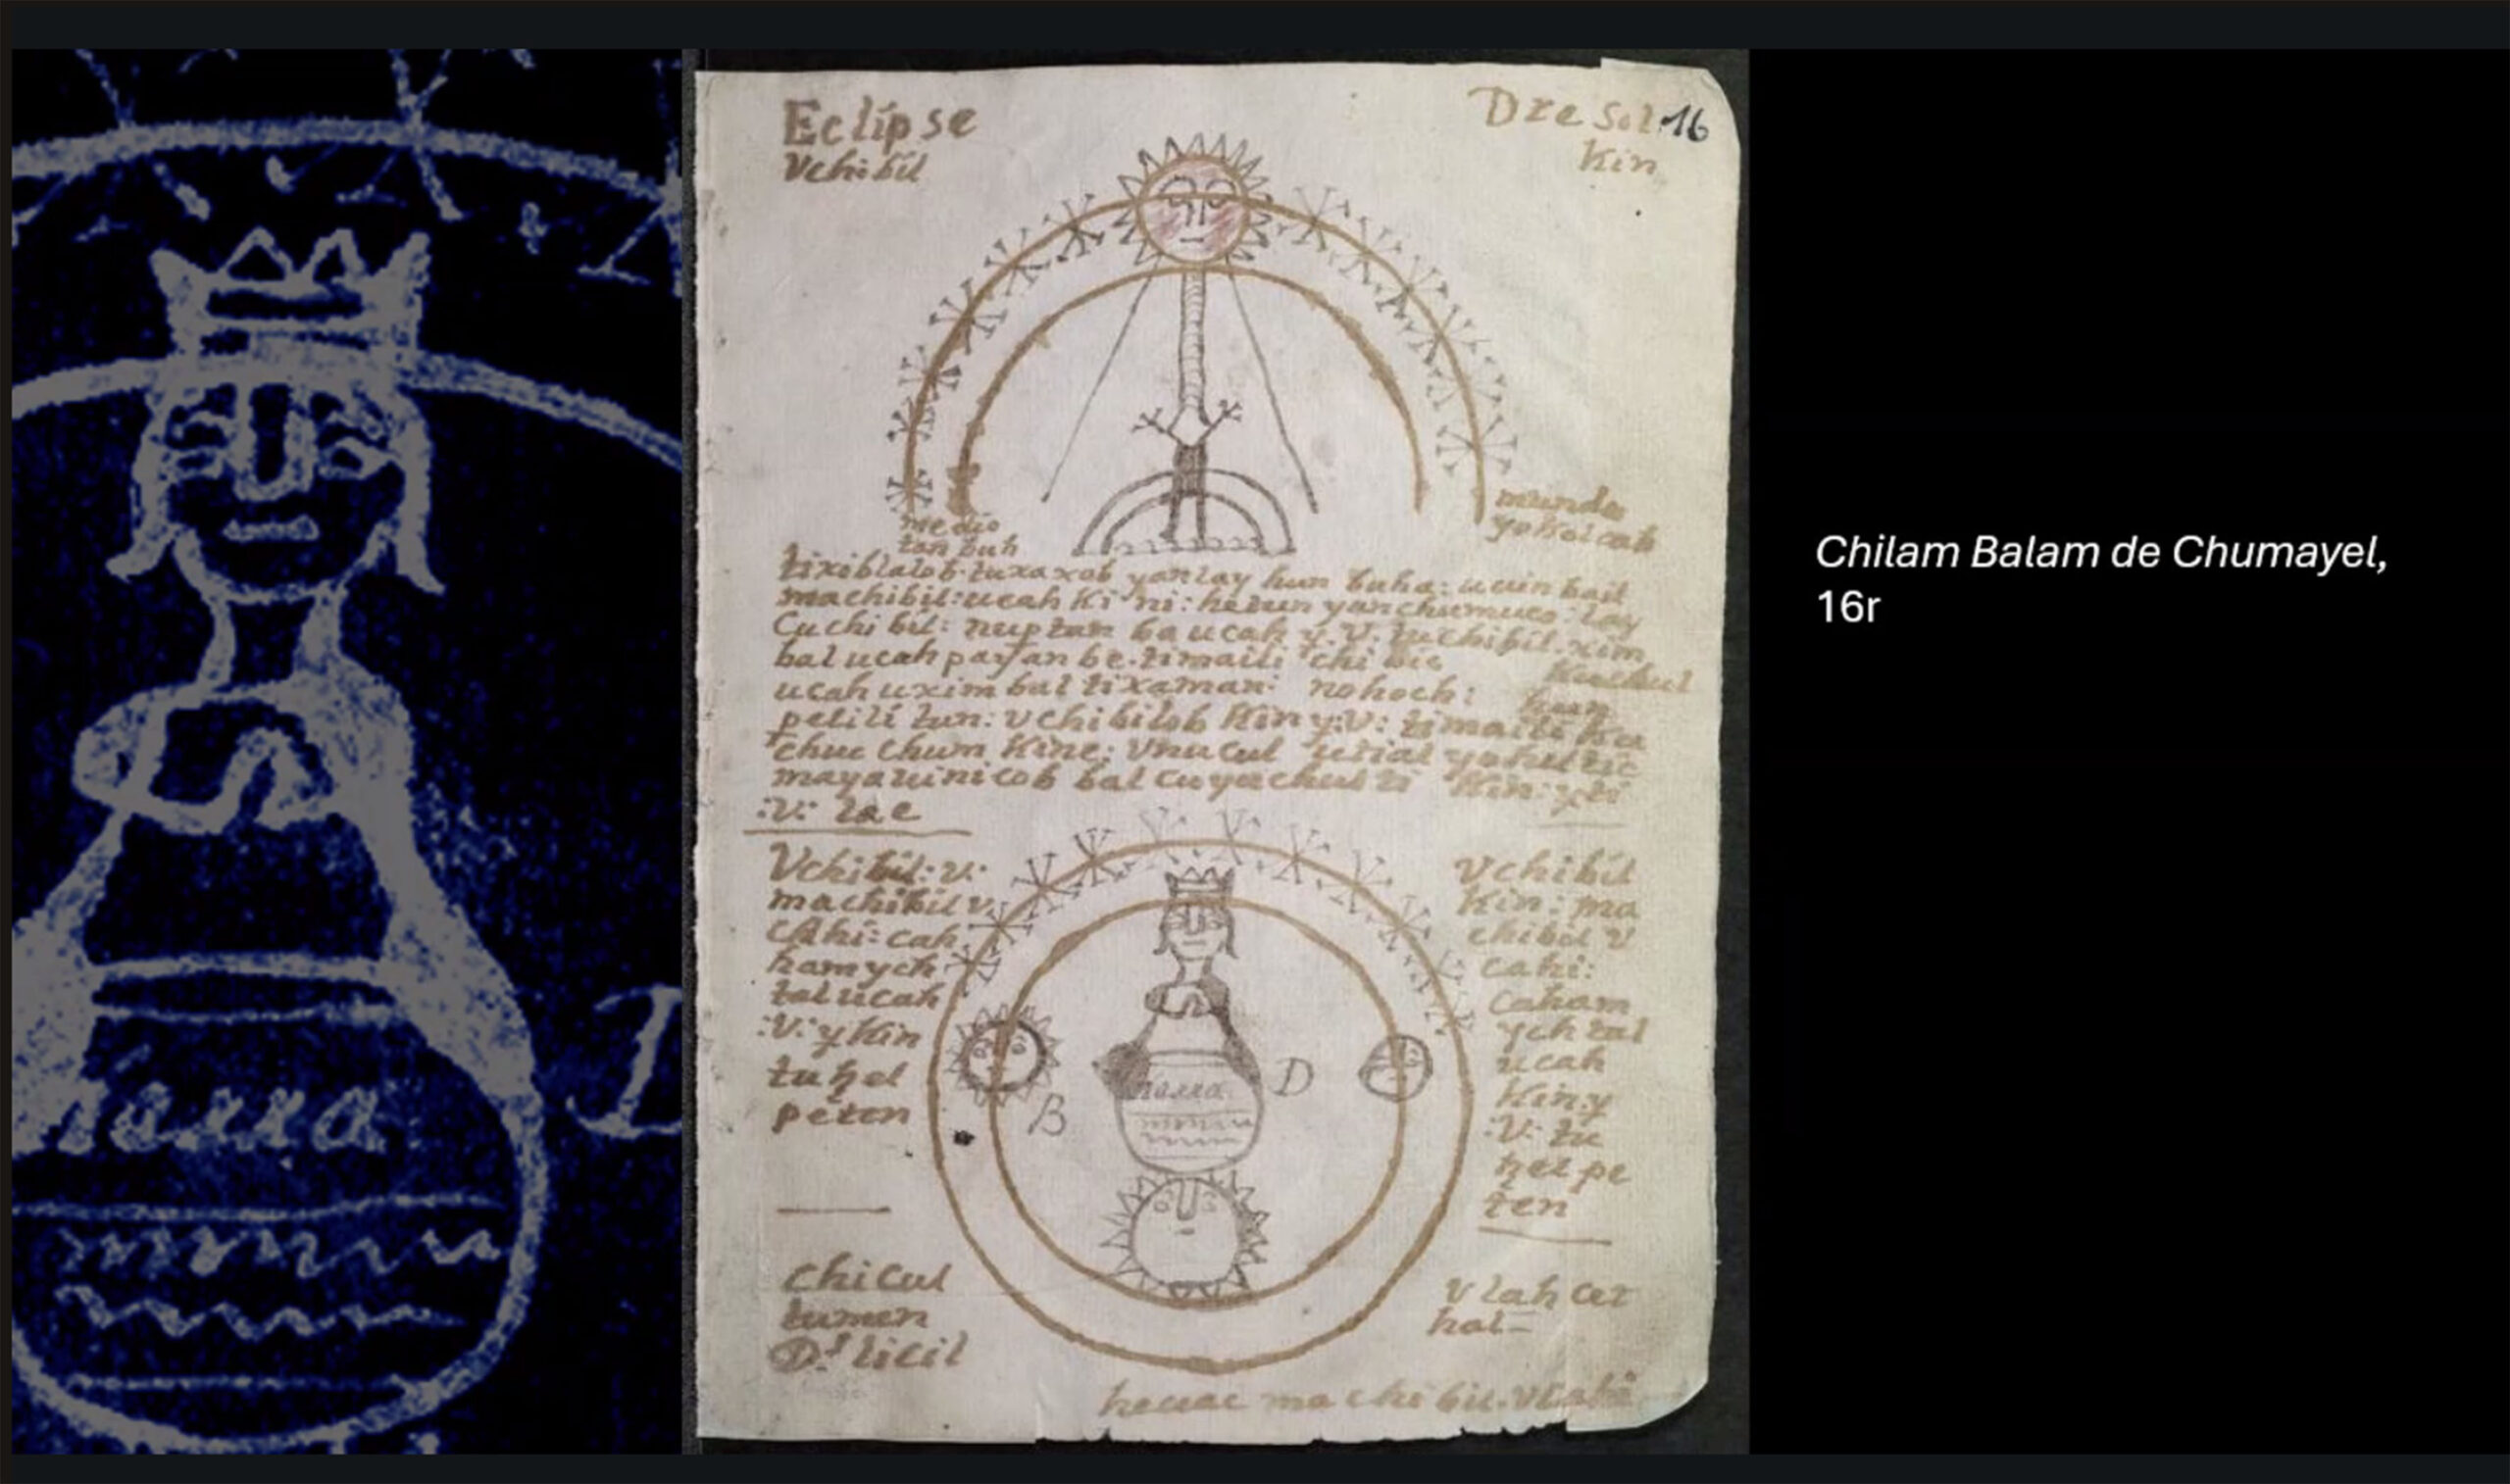 Eclipse
Vchibil
Dze Sol 16
Kin
mundo
yokolcab
medio
tan buh
tixiblalob. tuxaxob yanlay hun buha: uuin bail
machibil: ucah Ki ni: hetun yanchumuco: lay
Cuchi bil: nuptan ba ucah y. V. tuchibil. xim
bal ucah payan be. timaili
ucah uximbal tixaman: nohoch:
petili tun: vchibilob Kin y: V: timaili Ku
chuc chum Kine: Vnucul
mayauinicob bal cuyuchul ti Kin: y ti
:V: lae
Vchibil: V:
machibil V
cahi: cah
ham ych
tal ucah
:V: y Kin
tu hel
peten
Vchibil
Kin: ma
chibil V
cahi:
caham
ych tal
ucah
Kin y
:V: tu
hel pe
ten
B
D
chicul
tumen
Ds. licil
v lah cat
hal-
heuac machibil. Vcahi
Chilam Balam de Chumayel,
16r